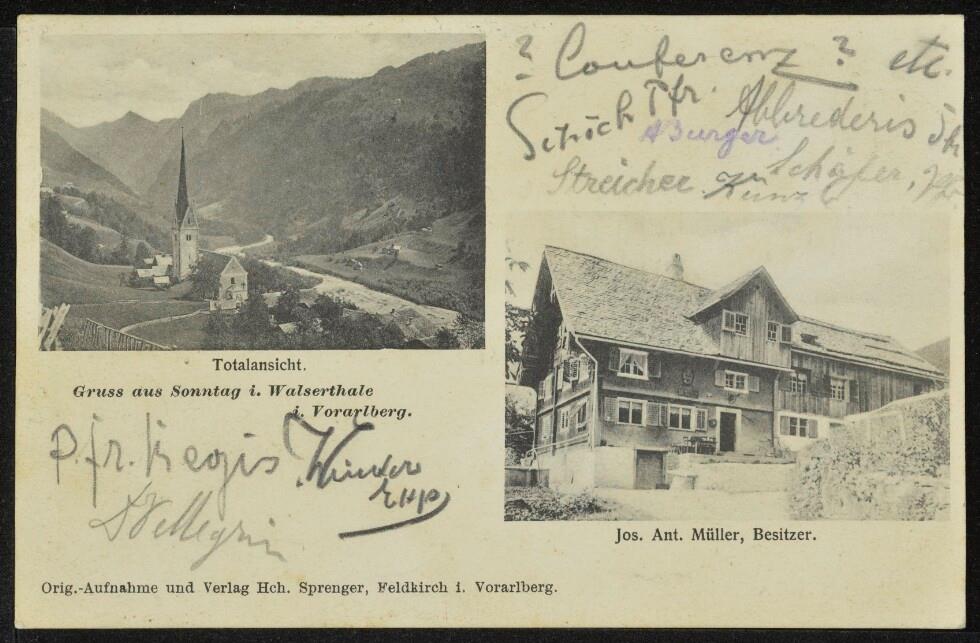 ? Conferenz ? etc.
Schöch Pfr. Abbrederis
A Burger
Streicher Künz Schäfer,
Totalansicht.
Gruss aus Sonntag i. Walserthale
i. Vorarlberg.
P.fr. Regis
Jos. Ant. Müller, Besitzer.
Orig.-Aufnahme und Verlag Hch. Sprenger, Feldkirch i. Vorarlberg.